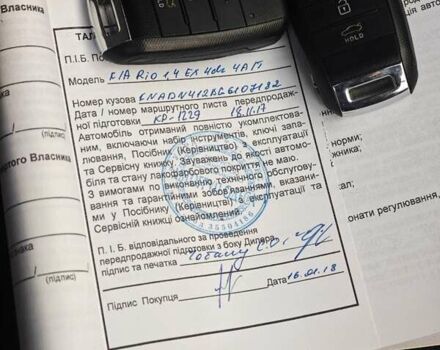 Власника
ТАЛ
П.І.Б. По
Модель KIA Rio 1.4 EX
Номер кузова
Дата / номер маршрутного листа передпродаж-
ної підготовки КР-1229 18.11.17
Автомобіль отриманий повністю укомплектова-
ним, включаючи набір інструментів, ключі запа-
лювання, Посібник (Керівництво) з експлуатації
та Сервісну книжку. Зауважень до якості автомо-
біля та стану лакофарбового покриття не маю.
З вимогами по виконанню технічного обслугову-
вання та гарантійними зобов'язаннями, вказани-
ми у Посібнику (Керівництві) з експлуатації та
Сервісній книжці ознайомлений.
П. І. Б. відповідального за проведення
передпродажної підготовки з боку Дилера,
підпис та печатка
Дата 16.01.18
Підпис Покупця
(підпис)
ертого Власника
(підпис)
HOLD
норми;
жника;
онати регулювання,